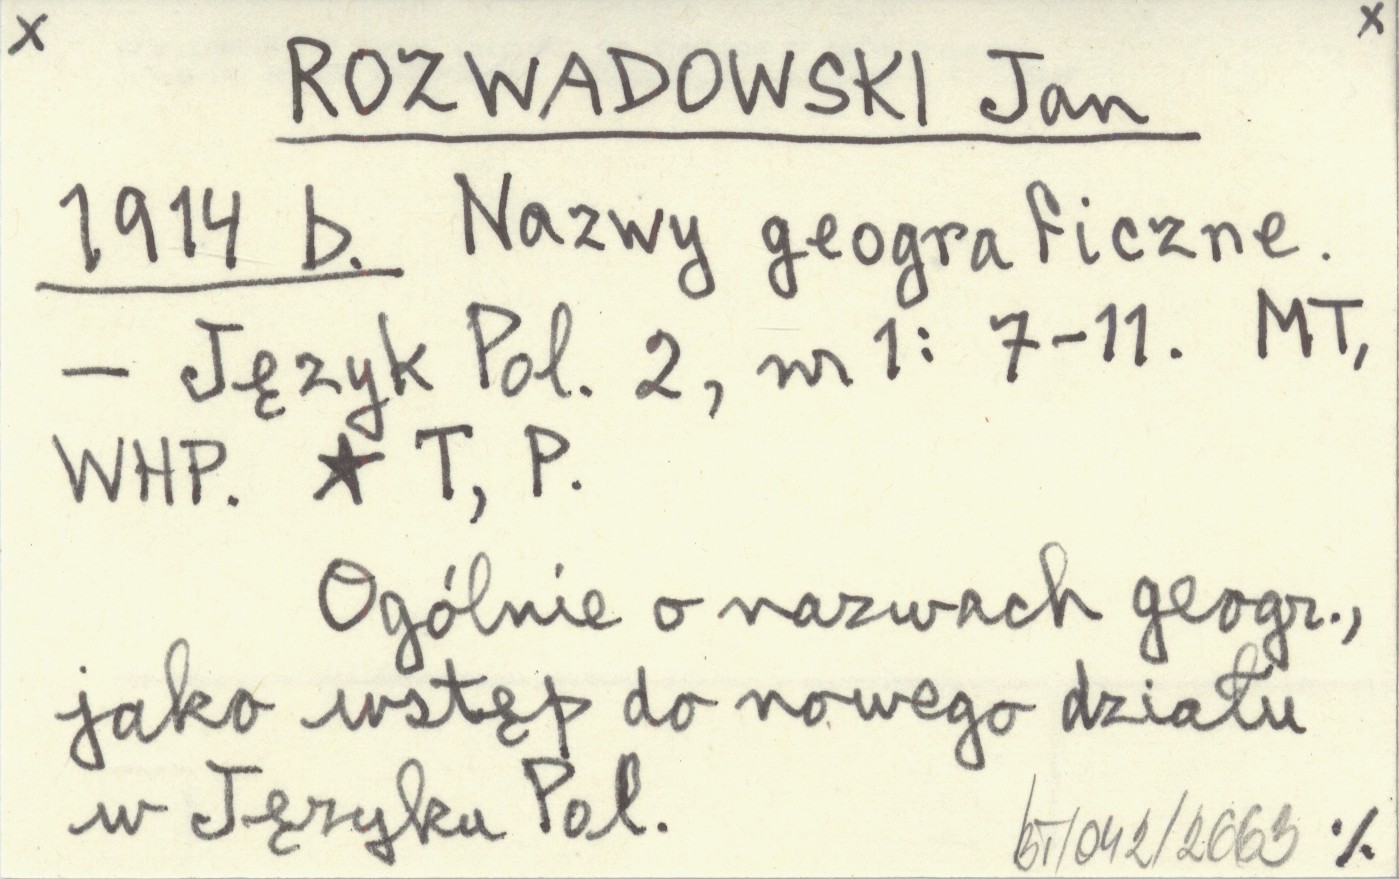 x x
ROZWADOWSKI Jan
1914 b. Nazwy geograficzne.
– Język Pol. 2, nr 1: 7–11. MT,
WHP. ★ T, P.
Ogólnie o nazwach geogr.,
jako wstęp do nowego działu
w Języku Pol.
BT/042/2663 ·/.